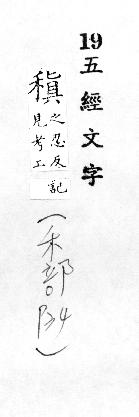 19五經文字
稹之忍反見考工記
(禾部